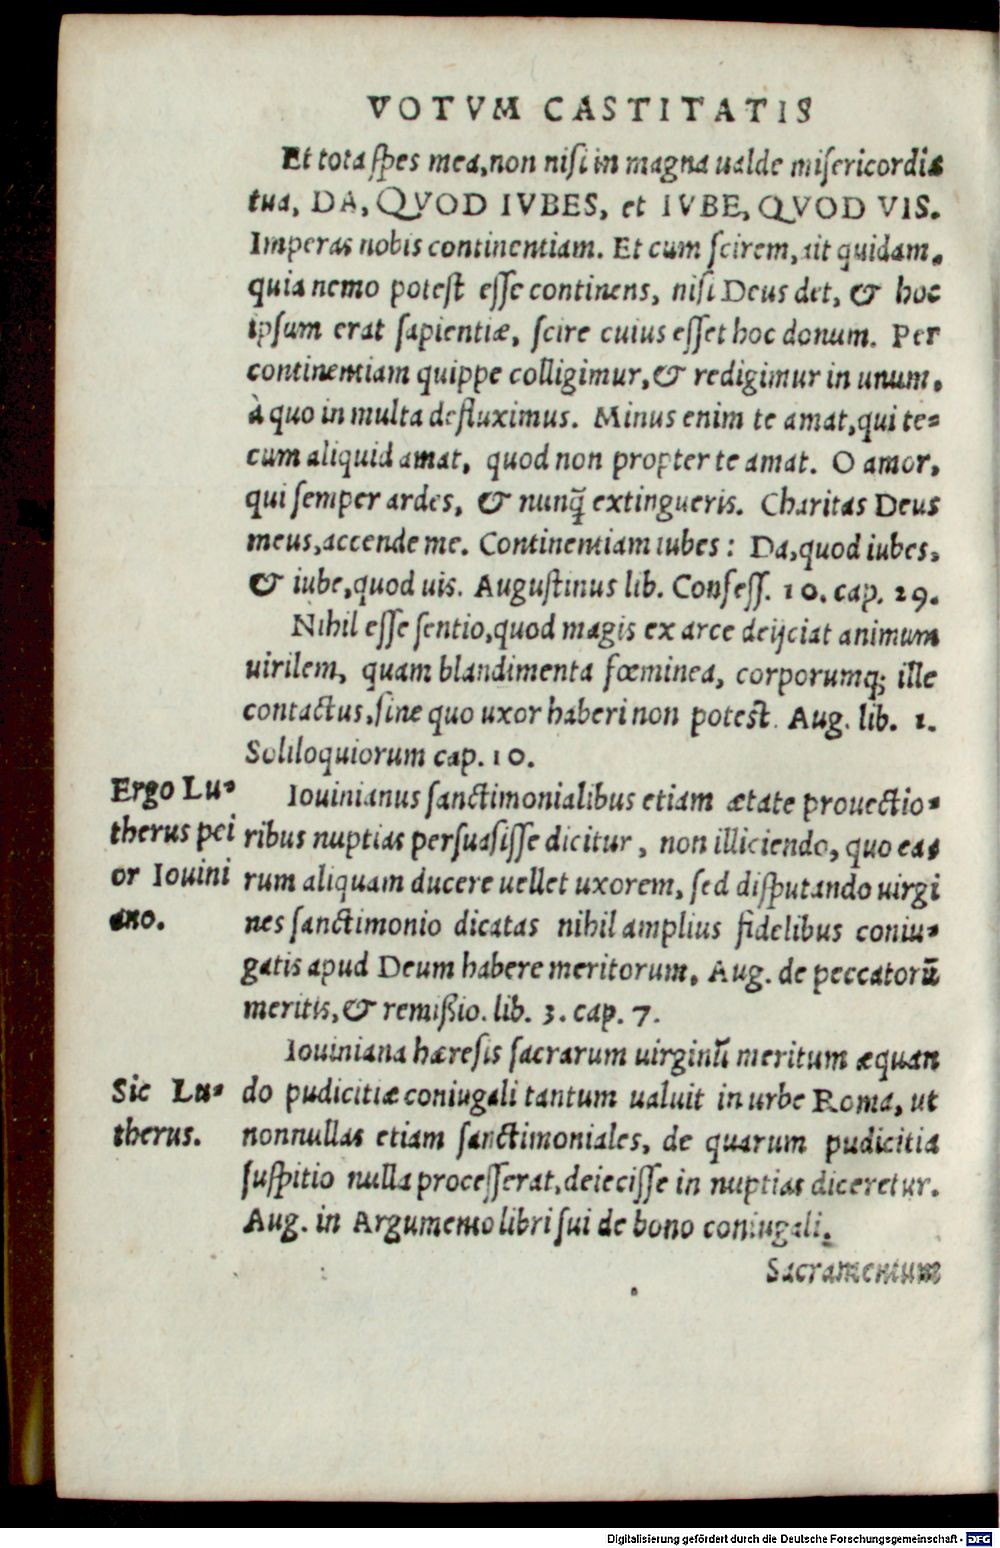 VOTVM CASTITATIS
Et tota spes mea, non nisi in magna ualde misericordia
tua, DA, QVOD IVBES, et IVBE, QVOD VIS.
Imperas nobis continentiam. Et cum scirem, ait quidam,
quia nemo potest esse continens, nisi Deus det, & hoc
ipsum erat sapientiæ, scire cuius esset hoc donum. Per
continentiam quippe colligimur, & redigimur in unum,
à quo in multa defluximus. Minus enim te amat, qui te-
cum aliquid amat, quod non propter te amat. O amor,
qui semper ardes, & nunq̃ extingueris. Charitas Deus
meus, accende me. Continentiam iubes: Da, quod iubes,
& iube, quod uis. Augustinus lib. Confess. 10. cap. 29.
Nihil esse sentio, quod magis ex arce deijciat animum
uirilem, quam blandimenta fœminea, corporumq; ille
contactus, sine quo uxor haberi non potest. Aug. lib. 1.
Soliloquiorum cap. 10.
Ergo Lu-
therus pei
or Iouini
ano.
Iouinianus sanctimonialibus etiam ætate prouectio-
ribus nuptias persuasisse dicitur, non illiciendo, quo eas
rum aliquam ducere uellet uxorem, sed disputando uirgi
nes sanctimonio dicatas nihil amplius fidelibus coniu-
gatis apud Deum habere meritorum, Aug. de peccatorũ
meritis, & remißio. lib. 3. cap. 7.
Iouiniana hæresis sacrarum uirginũ meritum æquan
Sic Lu-
therus.
do pudicitiæ coniugali tantum ualuit in urbe Roma, ut
nonnullas etiam sanctimoniales, de quarum pudicitia
suspitio nulla processerat, deiecisse in nuptias diceretur.
Aug. in Argumento libri sui de bono coniugali.
Sacramentum
Digitalisierung gefördert durch die Deutsche Forschungsgemeinschaft - DFG